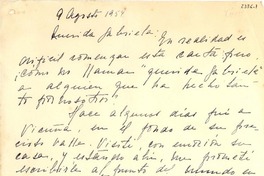 9 Agosto 1954
Querida Gabriela: En realidad es
difícil comenzar esta carta pero,
¿cómo no llamar "querida Gabriela"
a alguien que ha hecho tan-
to por nosotros?
Hace algunos días fui a
Vicuña, en el fondo de su pre-
cioso valle. Visité, con emoción su
casa, y estando ahí, me prometí
escribirle a